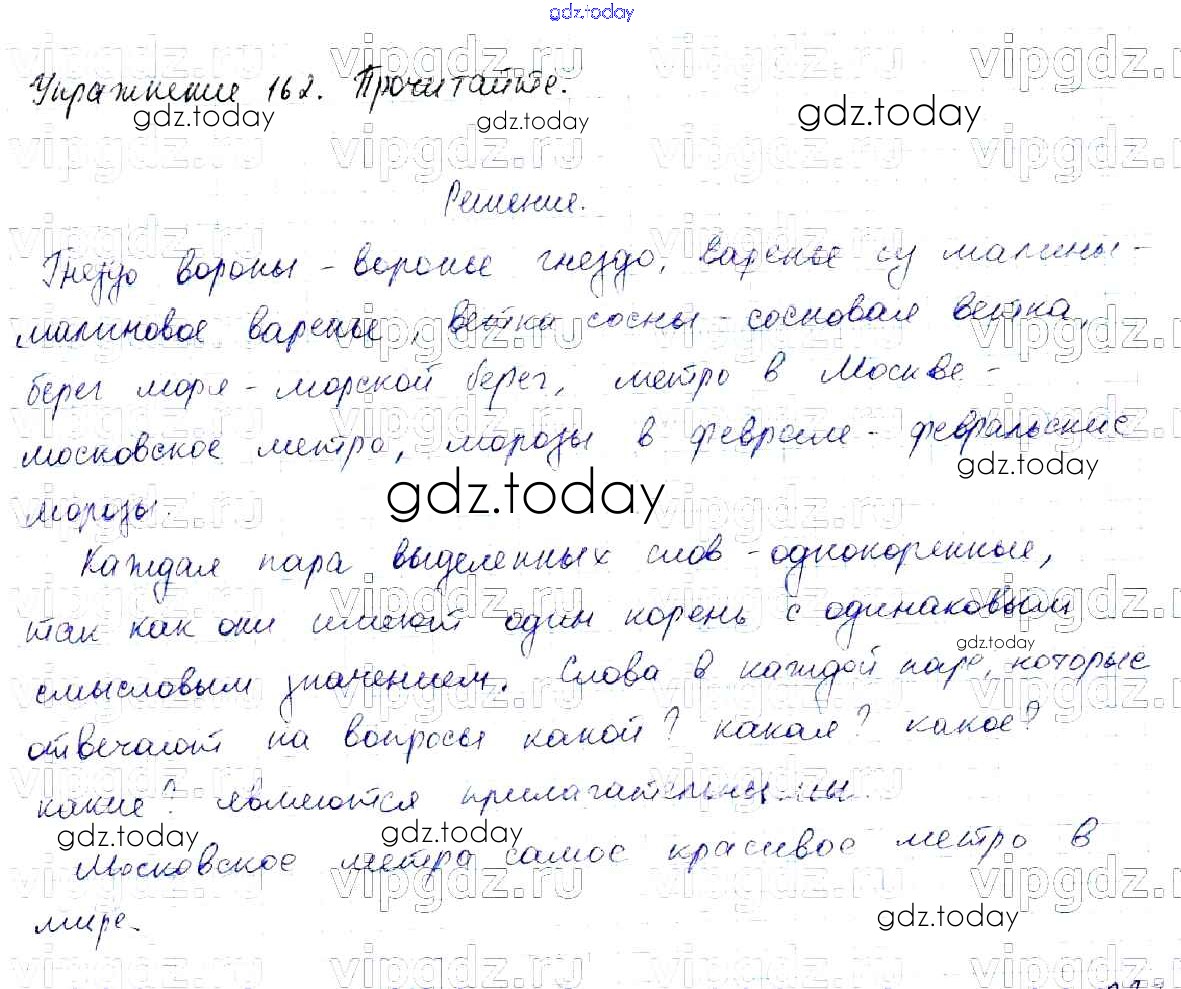 gdz.today
Упражнение 162. Прочитайте.
Решение.
Гнездо вороны - воронье гнездо, варенье из малины -
малиновое варенье, ветка сосны - сосновая ветка,
берег моря - морской берег, метро в Москве -
московское метро, морозы в феврале - февральские
морозы.
Каждая пара выделенных слов - однокоренные,
так как они имеют один корень с одинаковым
смысловым значением. Слова в каждой паре, которые
отвечают на вопросы какой? какая? какое?
какие? являются прилагательными.
Московское метро самое красивое метро в
мире.